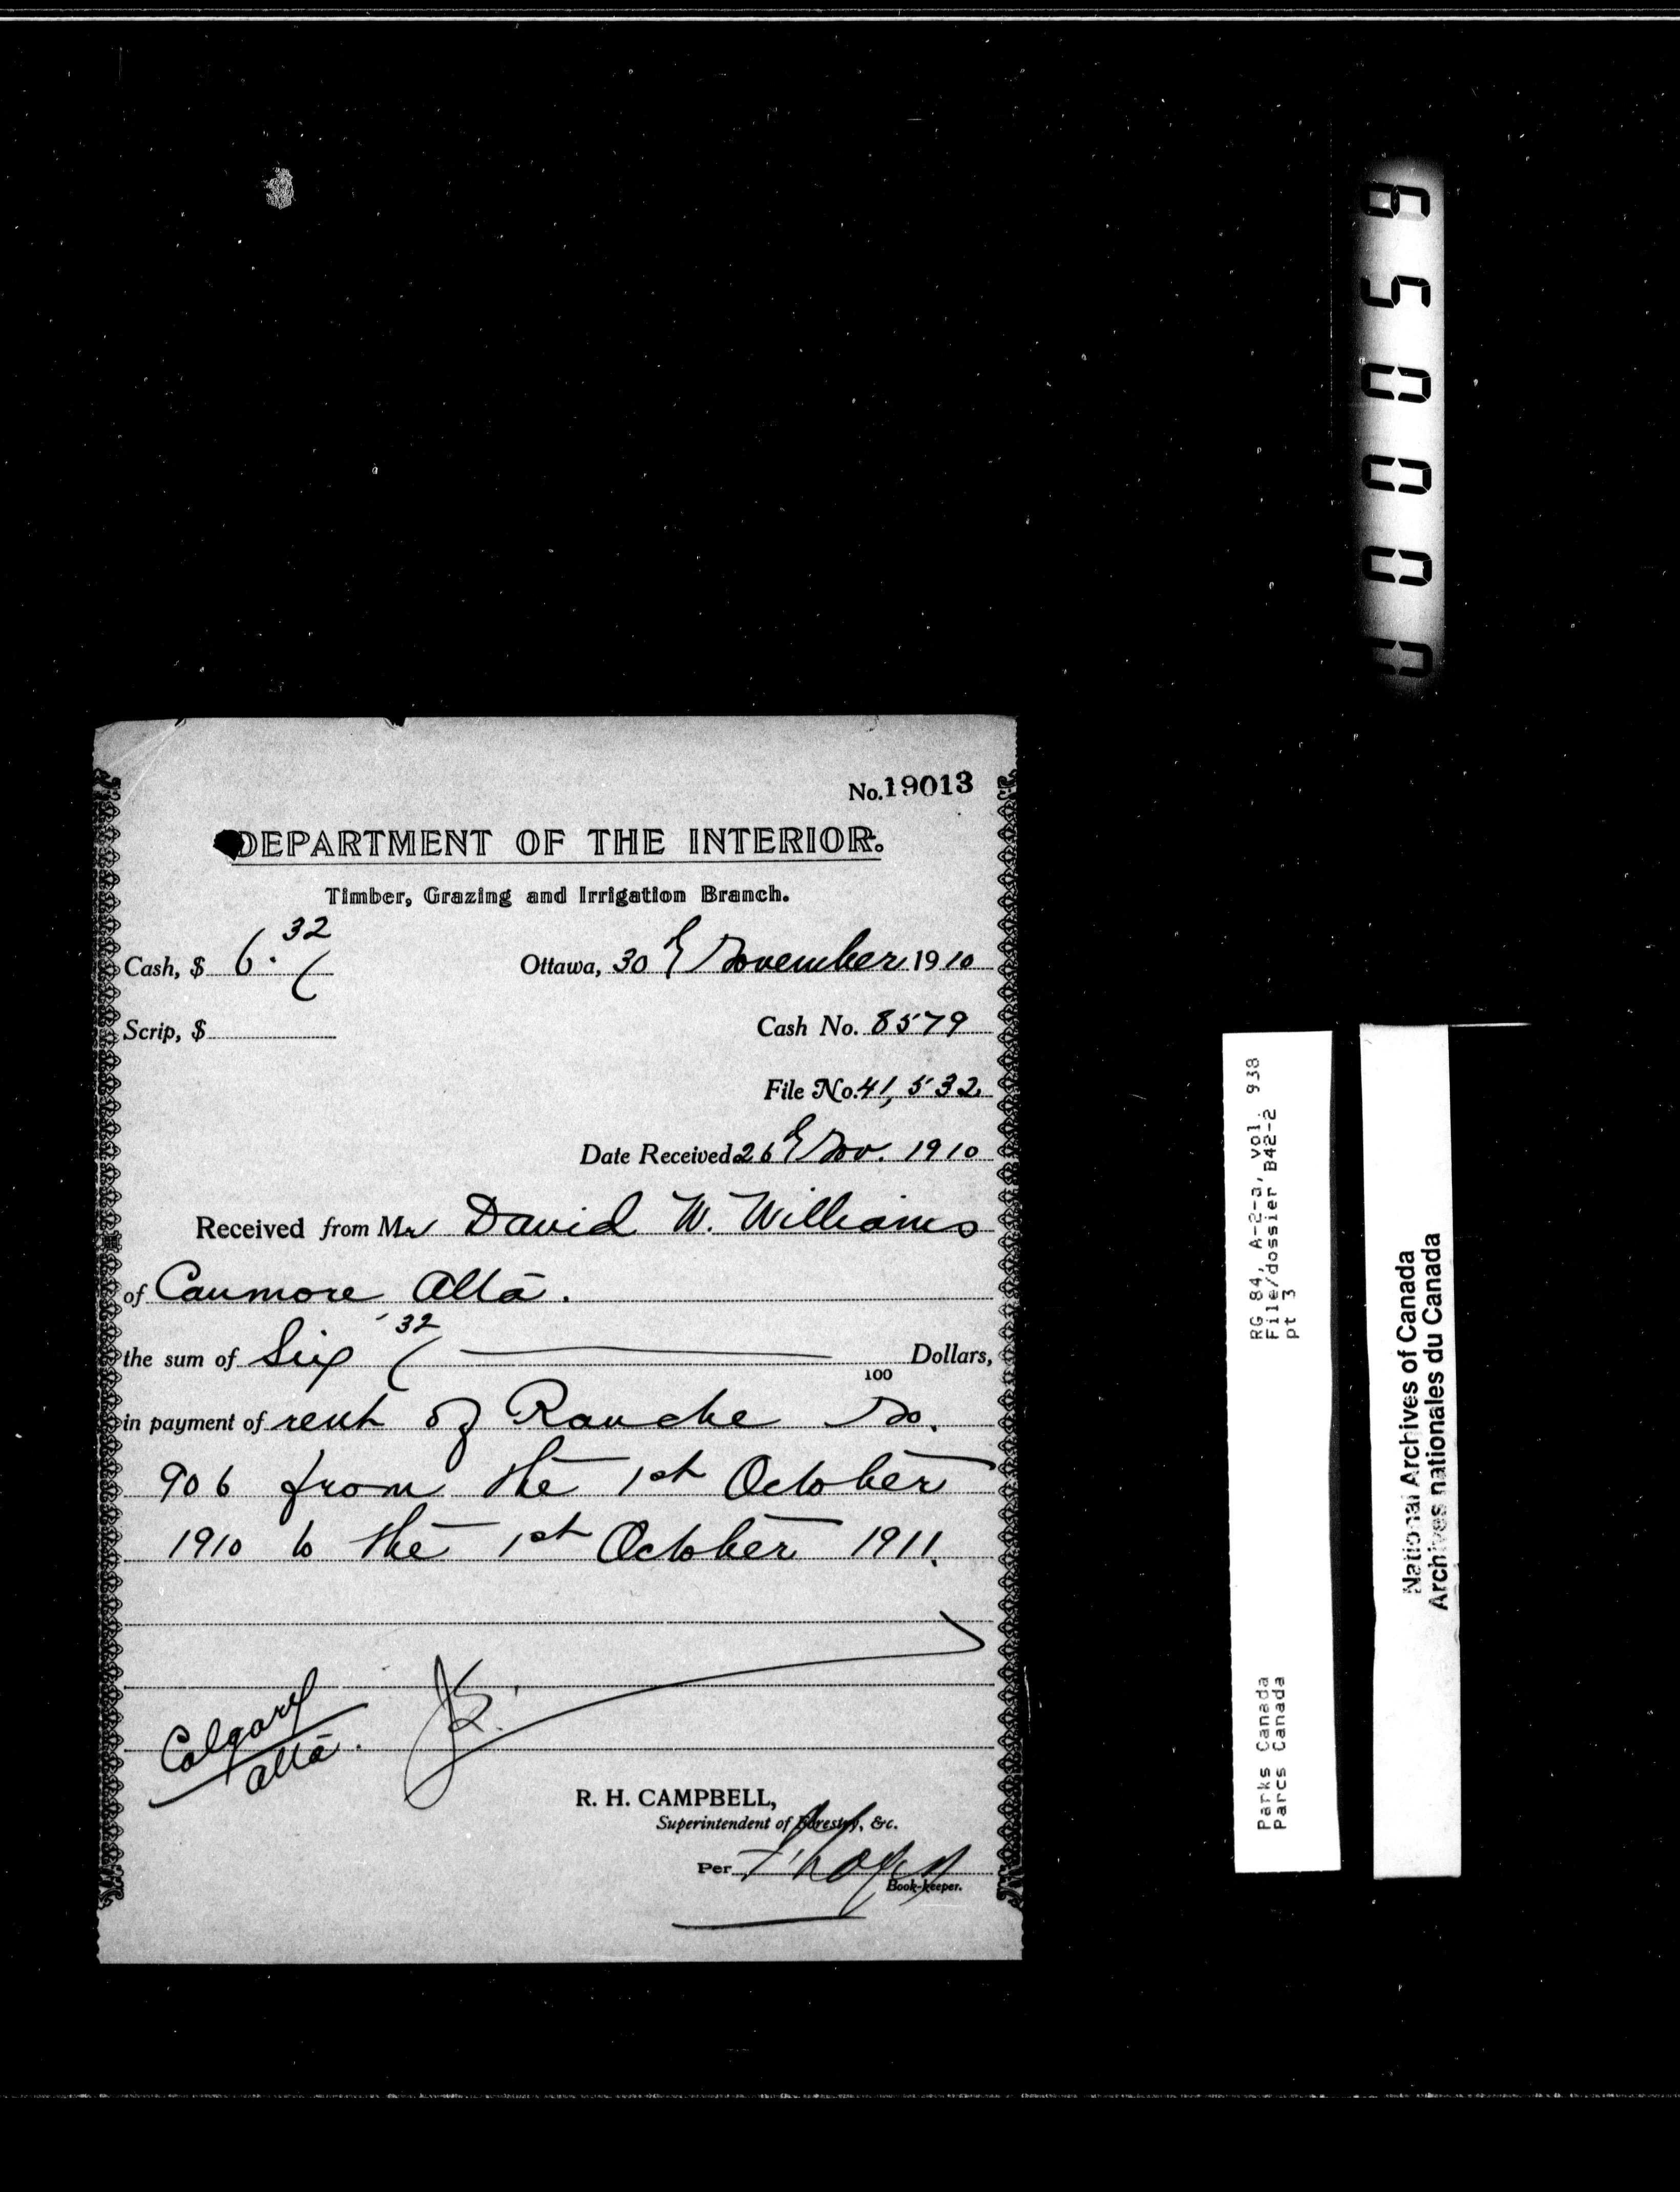 No. 19013
DEPARTMENT OF THE INTERIOR.
Timber, Grazing and Irrigation Branch.
Cash, $ 6.32
Ottawa, 30th November 1910
Scrip, $
Cash No. 8579
File No. 41,532
Date Received 26th Nov. 1910
Received from Mr David W. Williams
of Canmore Alta.
the sum of Six 32/100 Dollars,
in payment of rent of Ranche No.
906 from the 1st October
1910 to the 1st October 1911.
Calgary
Alta.
R. H. CAMPBELL,
Superintendent of Forestry, &c.
Per
Book-keeper.
000059
RG 84, A-2-a, vol. 938
File/dossier B42-2
pt 3
Parks Canada
Parcs Canada
National Archives of Canada
Archives nationales du Canada